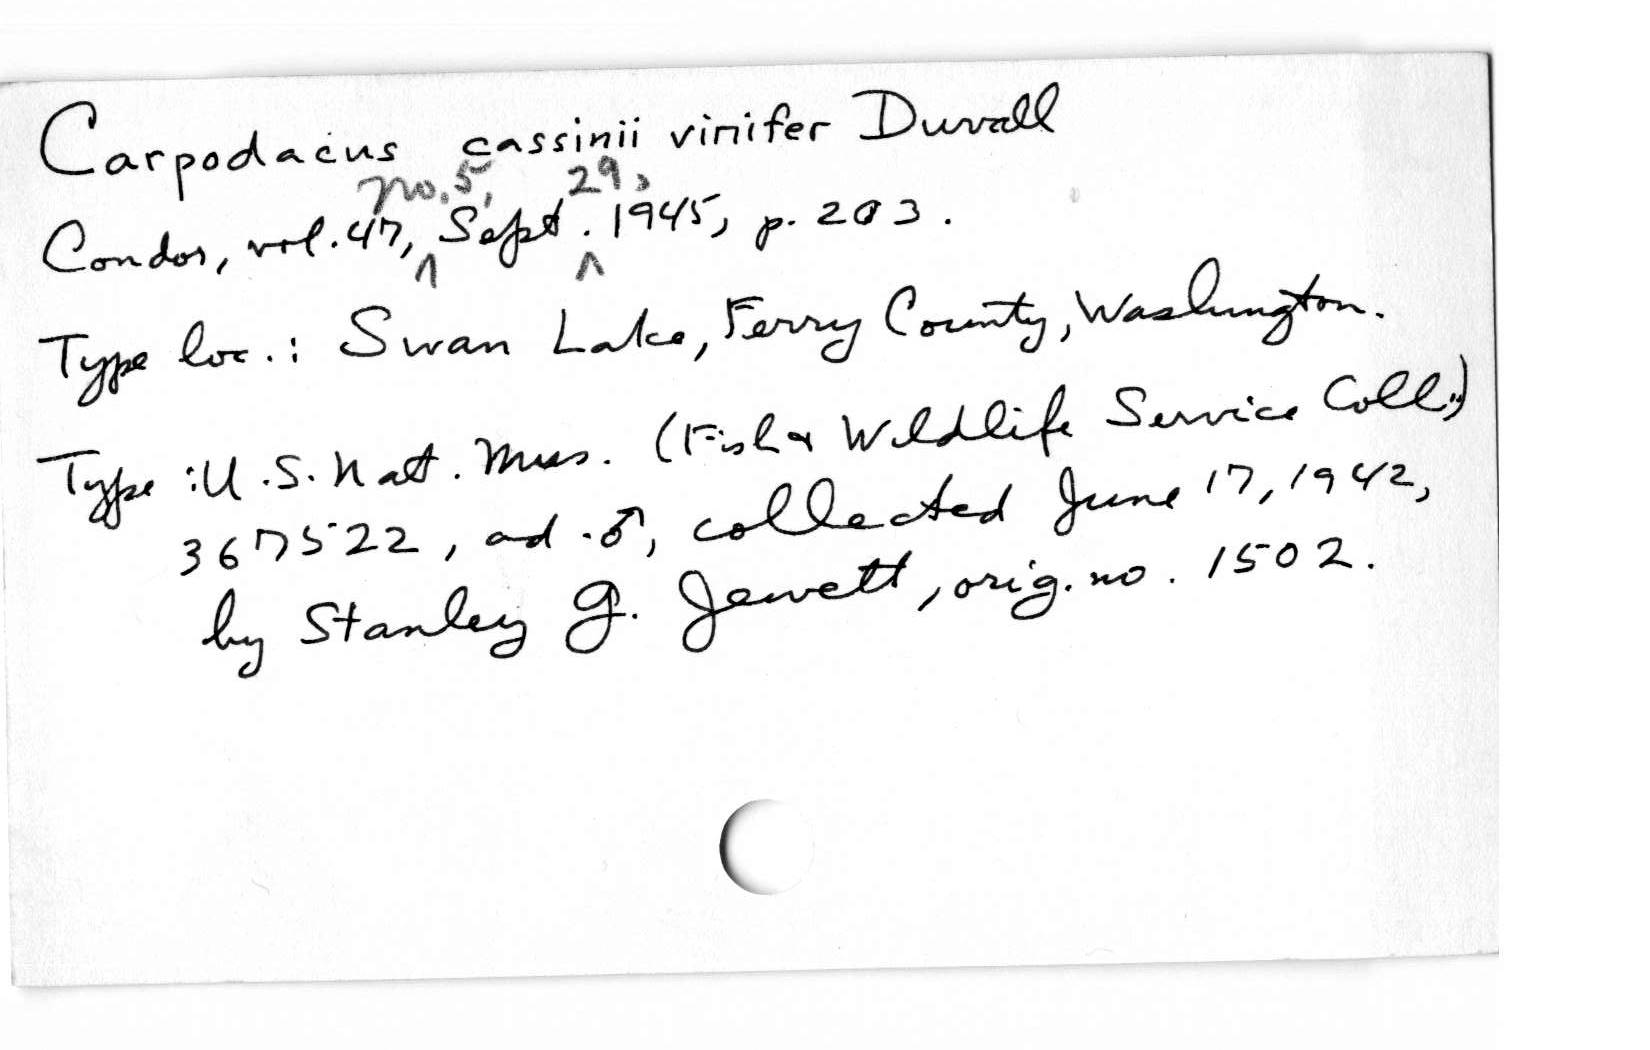 Carpodacus cassinii vinifer Duvall
no. 5, 29,
Condor, vol. 47, ^ Sept. ^ 1945, p. 203.
Type loc.: Swan Lake, Ferry County, Washington.
Type: U.S. Nat. Mus. (Fish & Wildlife Service Coll.)
367522, ad. ♂, collected June 17, 1942,
by Stanley G. Jewett, orig. no. 1502.